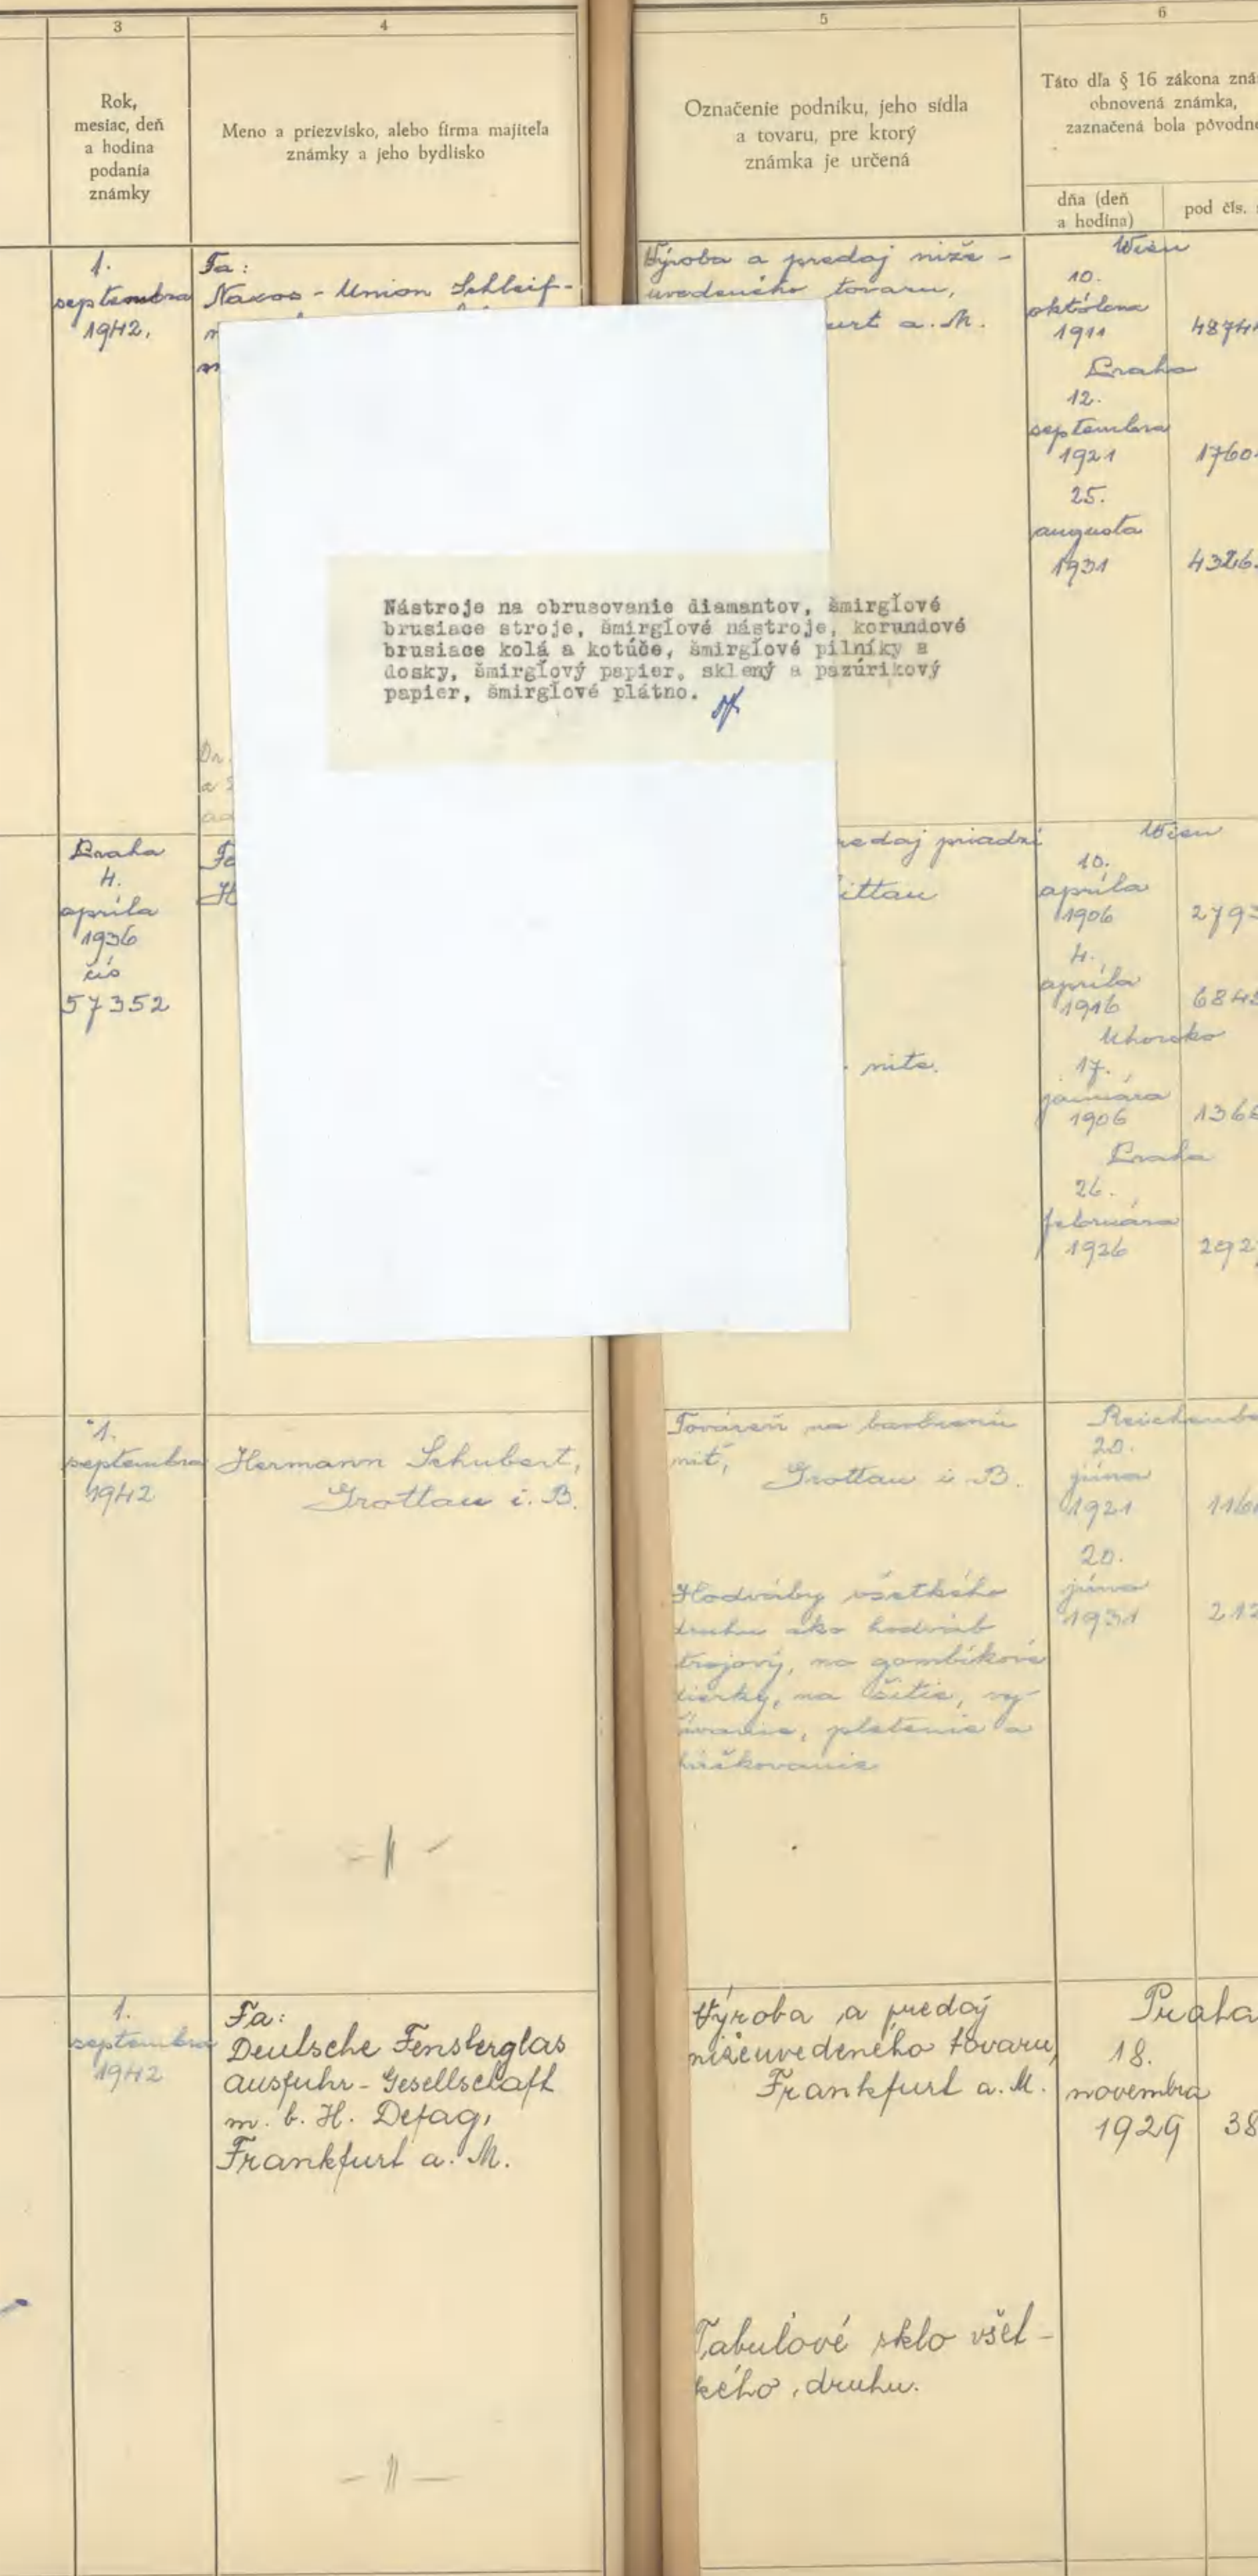 3
4
5
6
Rok,
mesiac, deň
a hodina
podania
známky
Meno a priezvisko, alebo firma majiteľa
známky a jeho bydlisko
Označenie podniku, jeho sídla
a tovaru, pre ktorý
známka je určená
Táto dľa § 16 zákona zná
obnovená známka,
zaznačená bola pôvodne
dňa (deň
a hodina)
pod čís.
1.
septembra
1942.
Fa:
Naxos - Union Schleif-
Výroba a predaj niže -
uvedeného tovaru,
furt a. M.
Wien
10.
októbra
1911
4874
Praha
12.
septembra
1921
1760
25.
augusta
1931
4326.
Nástroje na obrusovanie diamantov, šmirgľové
brusiace stroje, šmirgľové nástroje, korundové
brusiace kolá a kotúče, šmirgľové pilníky a
dosky, šmirgľový papier, sklený a pazúrikový
papier, šmirgľové plátno.
Dr.
Praha
4.
apríla
1936
čís
57352
Fa
H
redaj priadzí
ittau
nite.
Wien
10.
apríla
1906
2793
4.
apríla
1916
684
Uhorsko
17.
januára
1906
136
Praha
26.
februára
1926
292
1.
septembra
1942
Hermann Schubert,
Grottau i. B.
Továreň na barbrenú
niť,
Grottau i. B.
Hodváby všetkého
druhu ako hodváb
trojový, na gombíkové
dierky, na šitie, vy-
šívanie, pletenie a
háčkovanie
Reichenbe
20.
júna
1921
116
20.
júna
1931
212
- 11 -
1.
septembra
1942
Fa:
Deutsche Fensterglas
ausfuhr - Gesellschaft
m. b. H. Defag,
Frankfurt a. M.
Výroba a predaj
nižeuvedeného tovaru,
Frankfurt a. M.
Praha
18.
novembra
1929
38
Tabuľové sklo všet-
kého druhu.
- 11 -